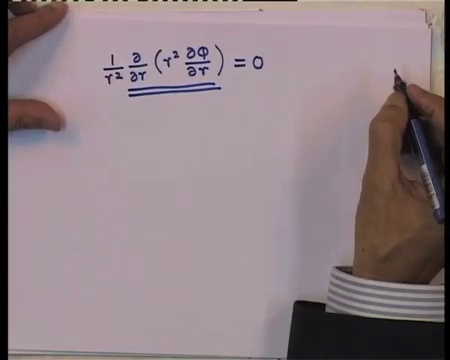 1/r² ∂/∂r (r² ∂Φ/∂r) = 0